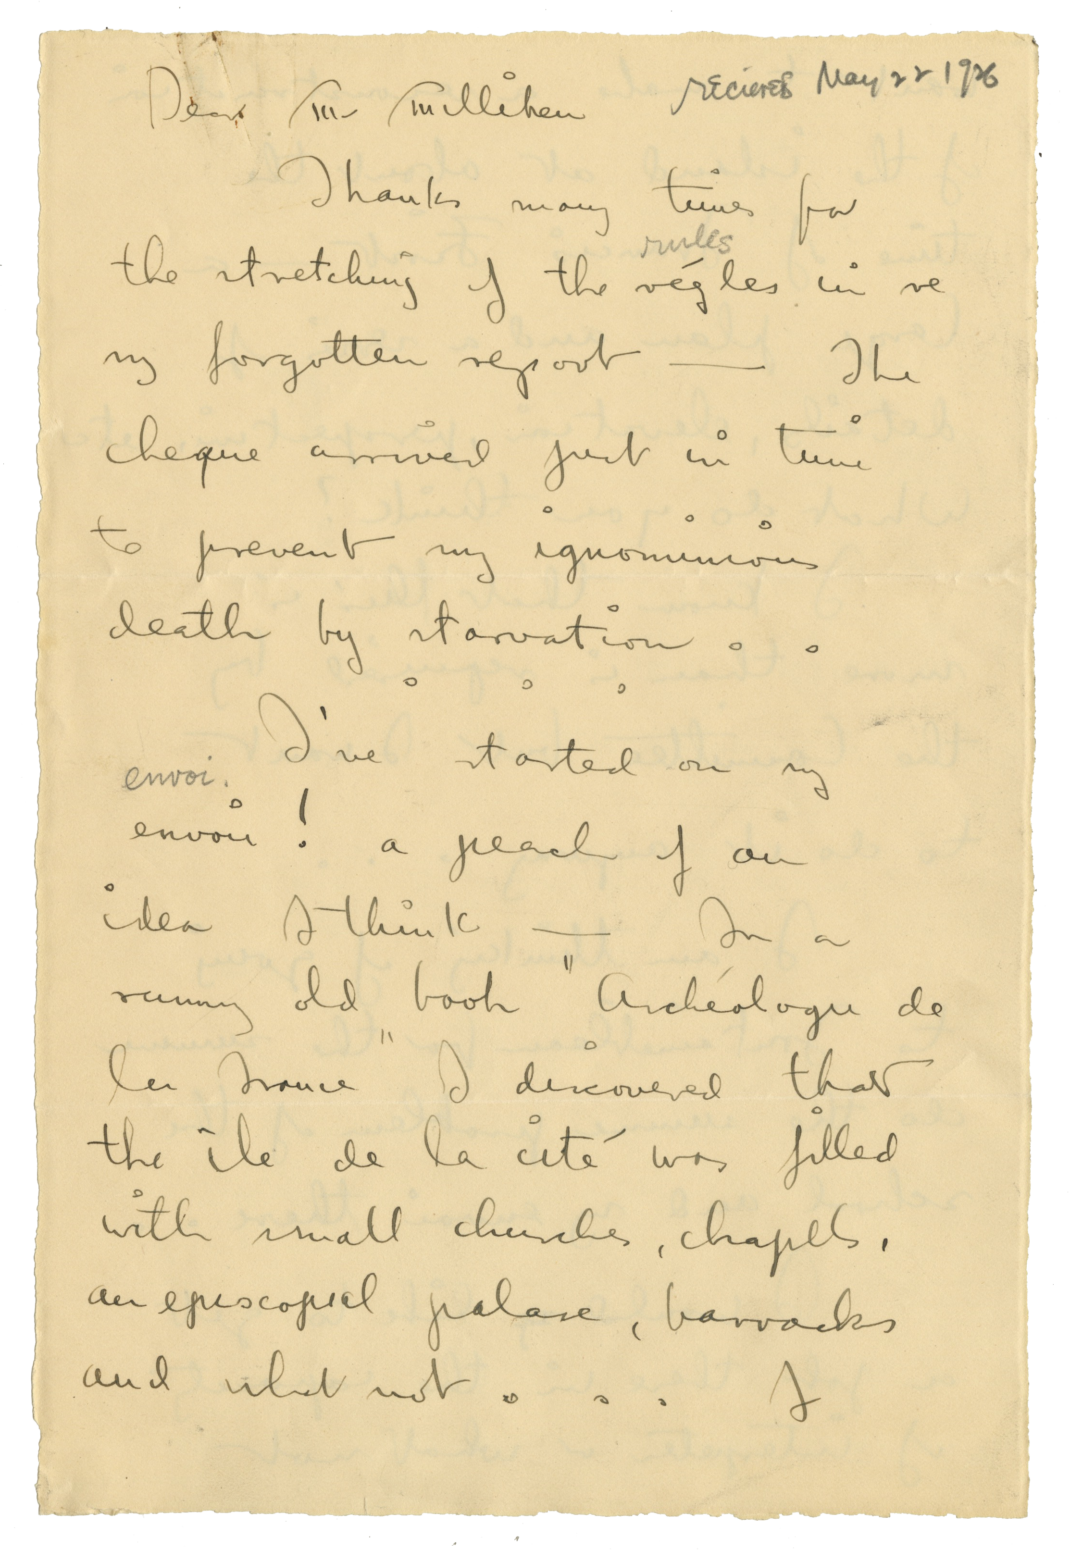 Dear Mr Milliken
recieved May 22 1926
Thanks many times for
rules
the stretching of the régles in re
my forgotten report — The
cheque arrived just in time
to prevent my ignominious
death by starvation . .
. . .
I've started on my
envoi.
envoii ! a peach of an
idea I think — In a
old book "Archéologie de
la France" I discovered that
the île de la cité was filled
with small churches, chaplls,
an episcopal palace, barracks
and what not . . . I